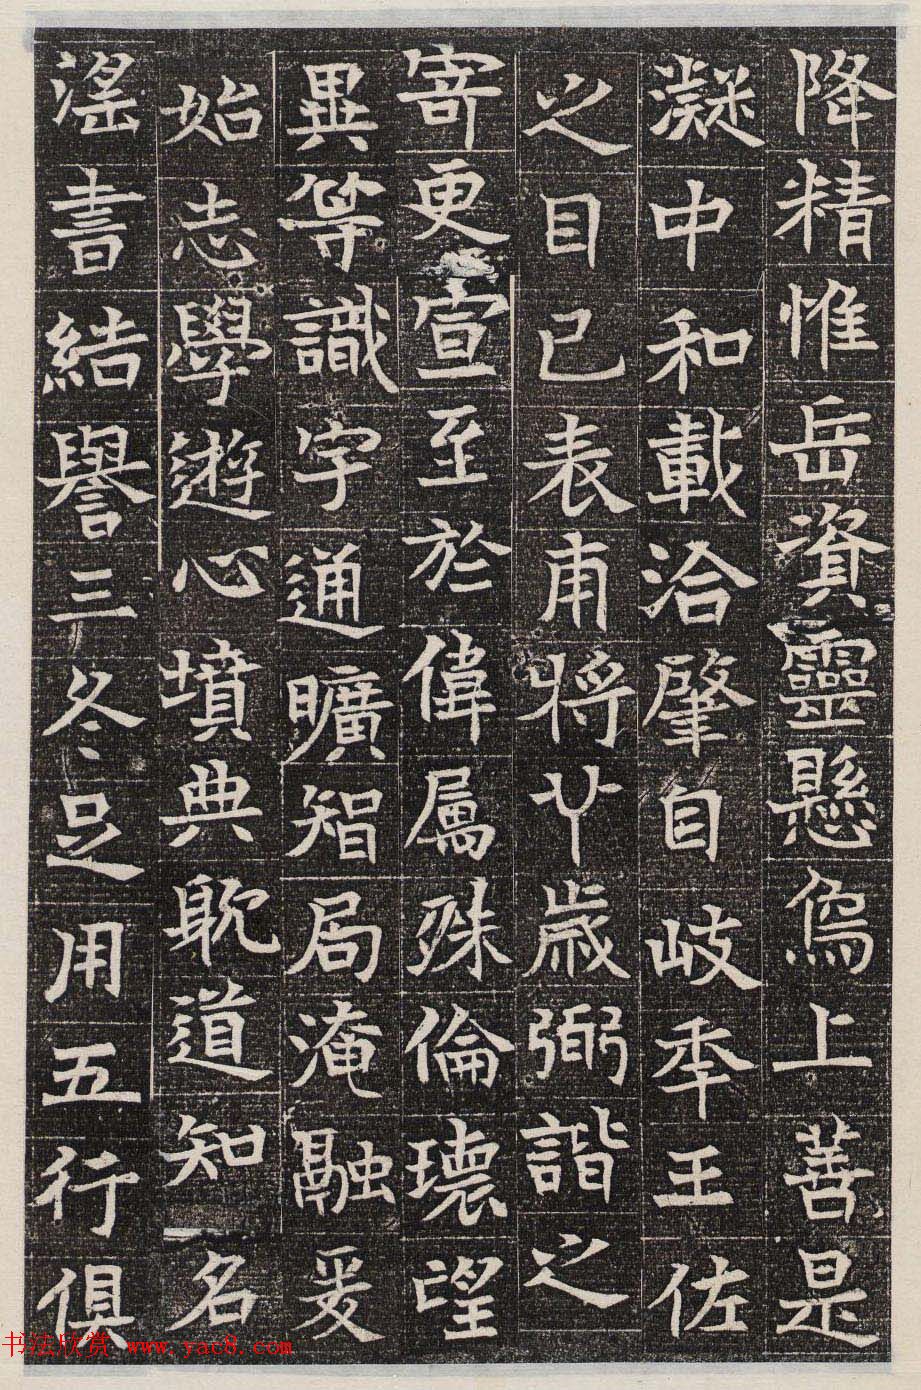 降精惟岳資靈懸鳥上善是
凝中和載洽肇自岐秊王佐
之目已表甫將廾歳弼諧之
寄更宣至於偉屬殊倫瓌望
異等識宇通曠智局淹融爰
始志學遊心墳典耽道知名
滛書結譽三冬足用五行俱
书法欣赏 www.yac8.com